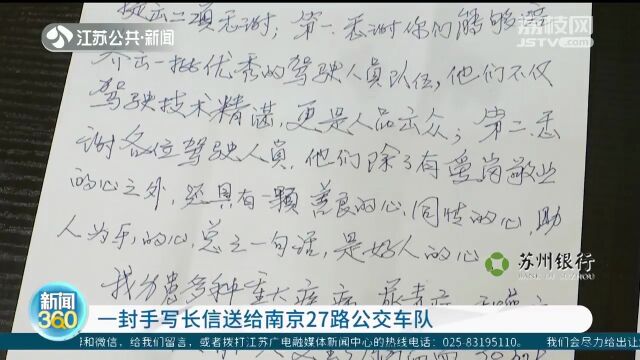 江苏公共·新闻
荔枝网
JSTV.com
提出二项感谢；第一.感谢你们能够培
养出一批优秀的驾驶人员队伍,他们不仅
驾驶技术精湛,更是人品出众；第二.感
谢各位驾驶人员,他们除了有爱岗敬业
的心之外,还具有一颗善良的心、同情的心、助
人为乐的心,总之一句话,是好人的心
我身患多种重大疾病
苏州银行
新闻
360
一封手写长信送给南京27路公交车队
帮和微信，给我们留言，或者拨打江苏广电融媒体新闻中心的热线电话：025-83195110。 我们会尽力给出让